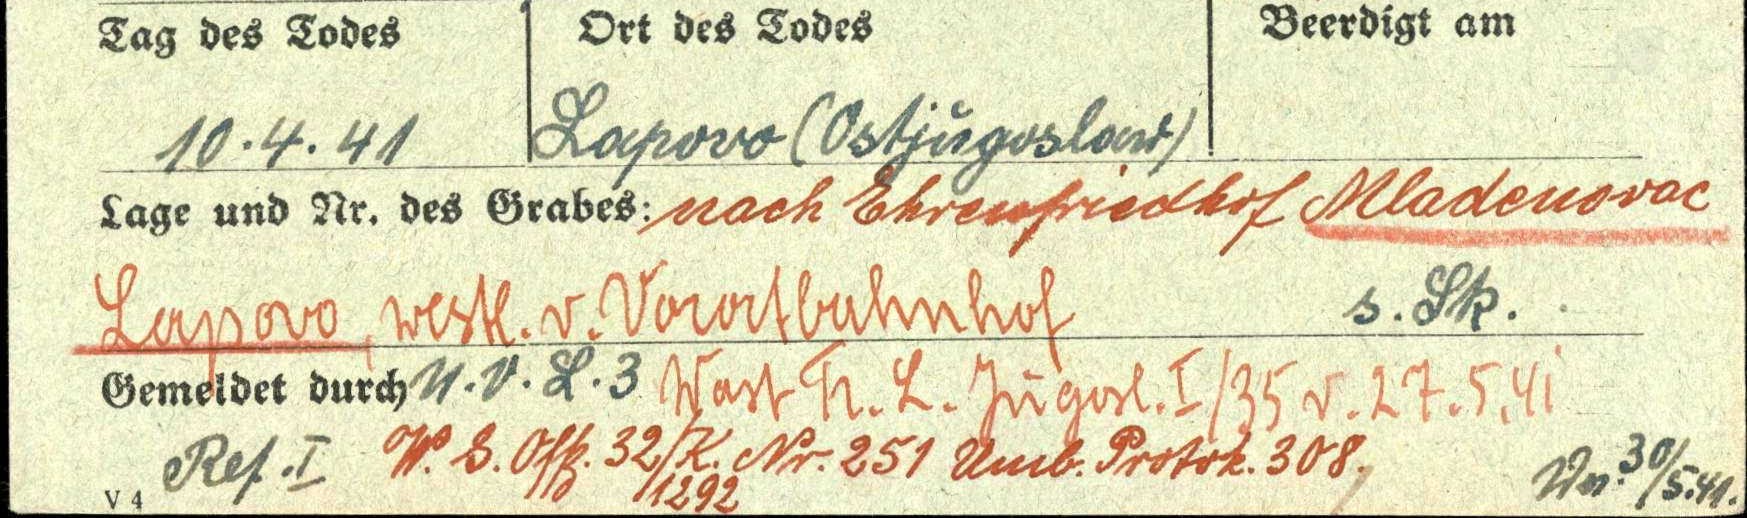 Tag des Todes Ort des Todes Beerdigt am
10.4.41 Lapovo (Ostjugoslaw)
Lage und Nr. des Grabes: nach Ehrenfriedhof Mladenovac
Lapovo, westl. v. Vorortbahnhof s. Sk.
Gemeldet durch N.V.L.3 Wast Tr. L. Jugosl. I/35 v. 27.5.41
Ref. I W. G. Offz. 32/K. Nr. 251 Umb. Protok. 308.
1292 30/5.41.
V 4